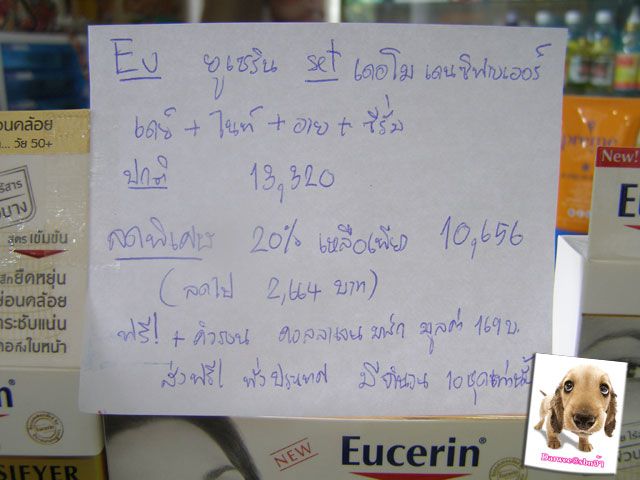 Eu ยูเซอริน set เดอโม เดนซิฟายเออร์
เดย์ + ไนท์ + อาย + ซีรั่ม
ปกติ 13,320
ลดพิเศษ 20% เหลือเพียง 10,656
(ลดไป 2,664 บาท)
ฟรี! + คอลลาเจน มาร์ก มูลค่า 169 บ.
ส่งฟรี! ทั่วประเทศ มีจำนวน 10 ชุดเท่านั้น
่อนคล้อย
วัย 50+
สูตรเข้มข้น
ยืดหยุ่น
่อนคล้อย
กระชับแน่น
ใบหน้า
Eucerin®
New!
Euc
NEW
Eucerin®